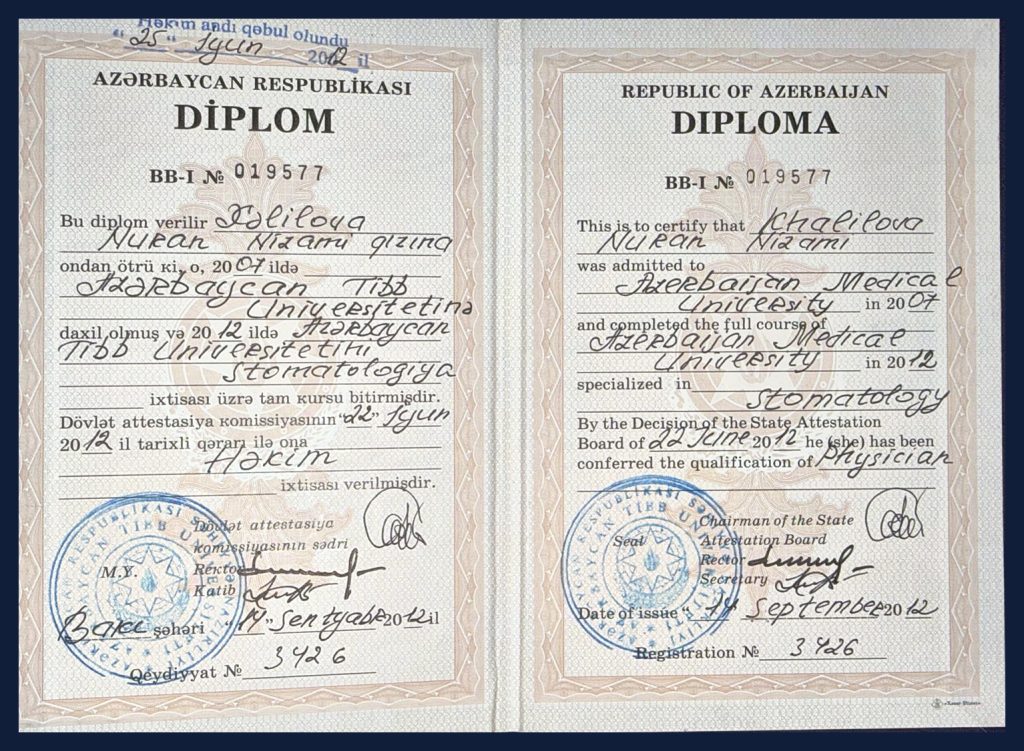 Həkim andı qəbul olundu
"25" İyun 2012 il
AZƏRBAYCAN RESPUBLİKASI
DİPLOM
BB-I № 019577
Bu diplom verilir Xəlilova
Nuran Nizami qızına
ondan ötrü ki, o, 2007 ildə
Azərbaycan Tibb
Universitetinə
daxil olmuş və 2012 ildə Azərbaycan
Tibb Universitetini
Stomatologiya
ixtisası üzrə tam kursu bitirmişdir.
Dövlət attestasiya komissiyasının "22" İyun
2012 il tarixli qərarı ilə ona
Həkim
ixtisası verilmişdir.
Dövlət attestasiya
komissiyasının sədri
M.Y. Rektor
Katib
Bakı şəhəri "14" Sentyabr 2012 il
Qeydiyyat № 3426
REPUBLIC OF AZERBAIJAN
DIPLOMA
BB-I № 019577
This is to certify that Khalilova
Nuran Nizami
was admitted to
Azerbaijan Medical
University in 2007
and completed the full course of
Azerbaijan Medical
University in 2012
specialized in
Stomatology
By the Decision of the State Attestation
Board of 22 June 2012 he (she) has been
conferred the qualification of Physician
Chairman of the State
Seal Attestation Board
Rector
Secretary
Date of issue "14 September 2012
Registration № 3426